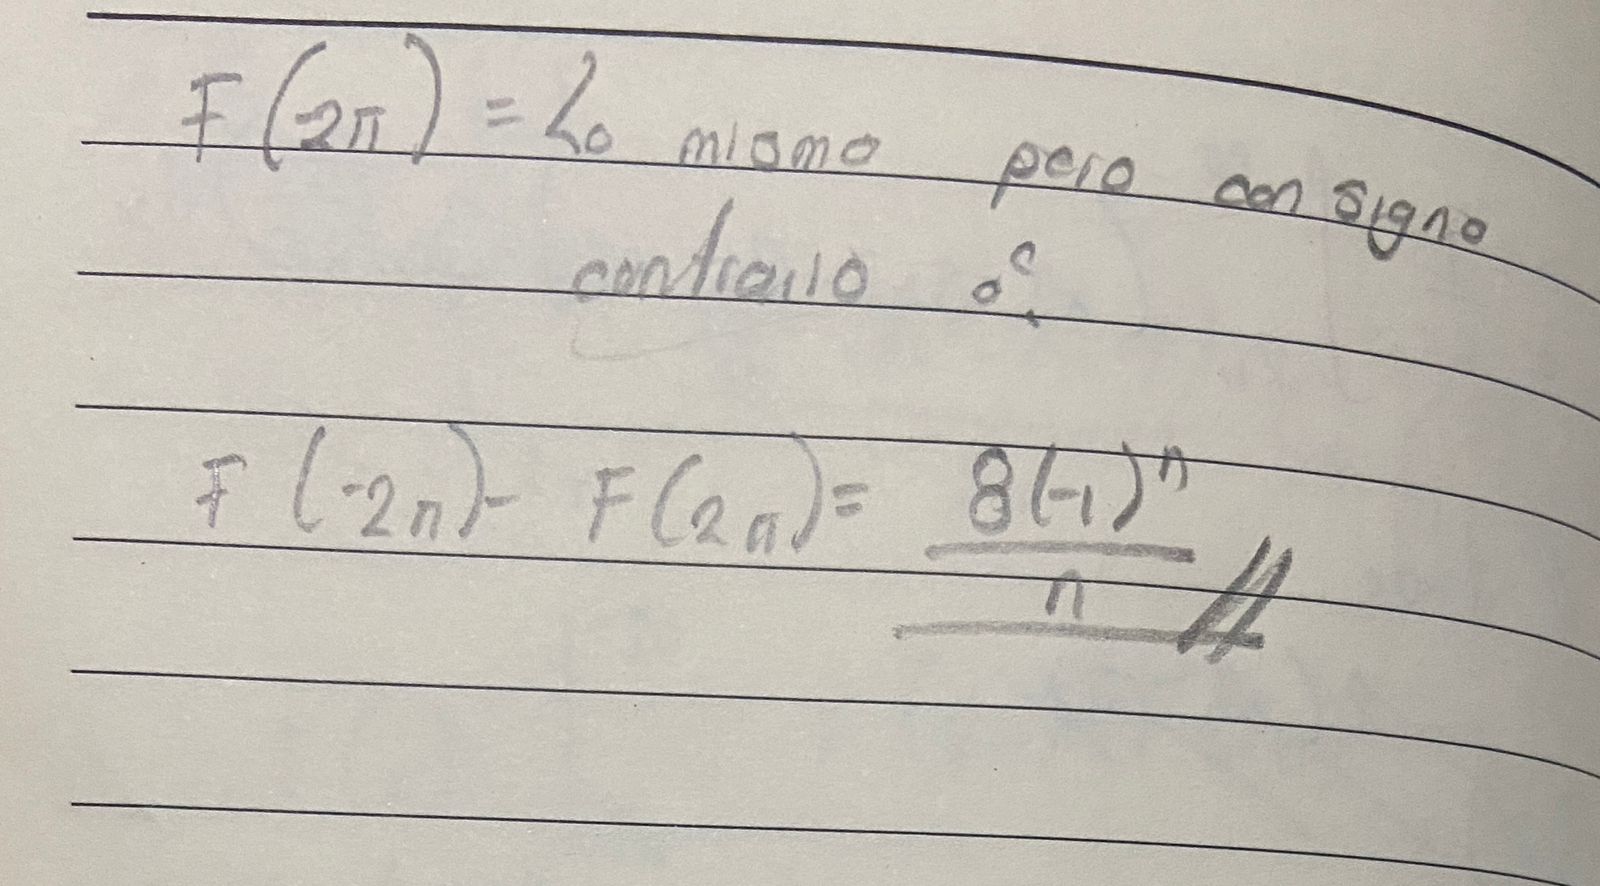 F(-2π) = Lo mismo pero con signo
contrario ∴
F(-2π) - F(2π) = 8(-1)^n / n